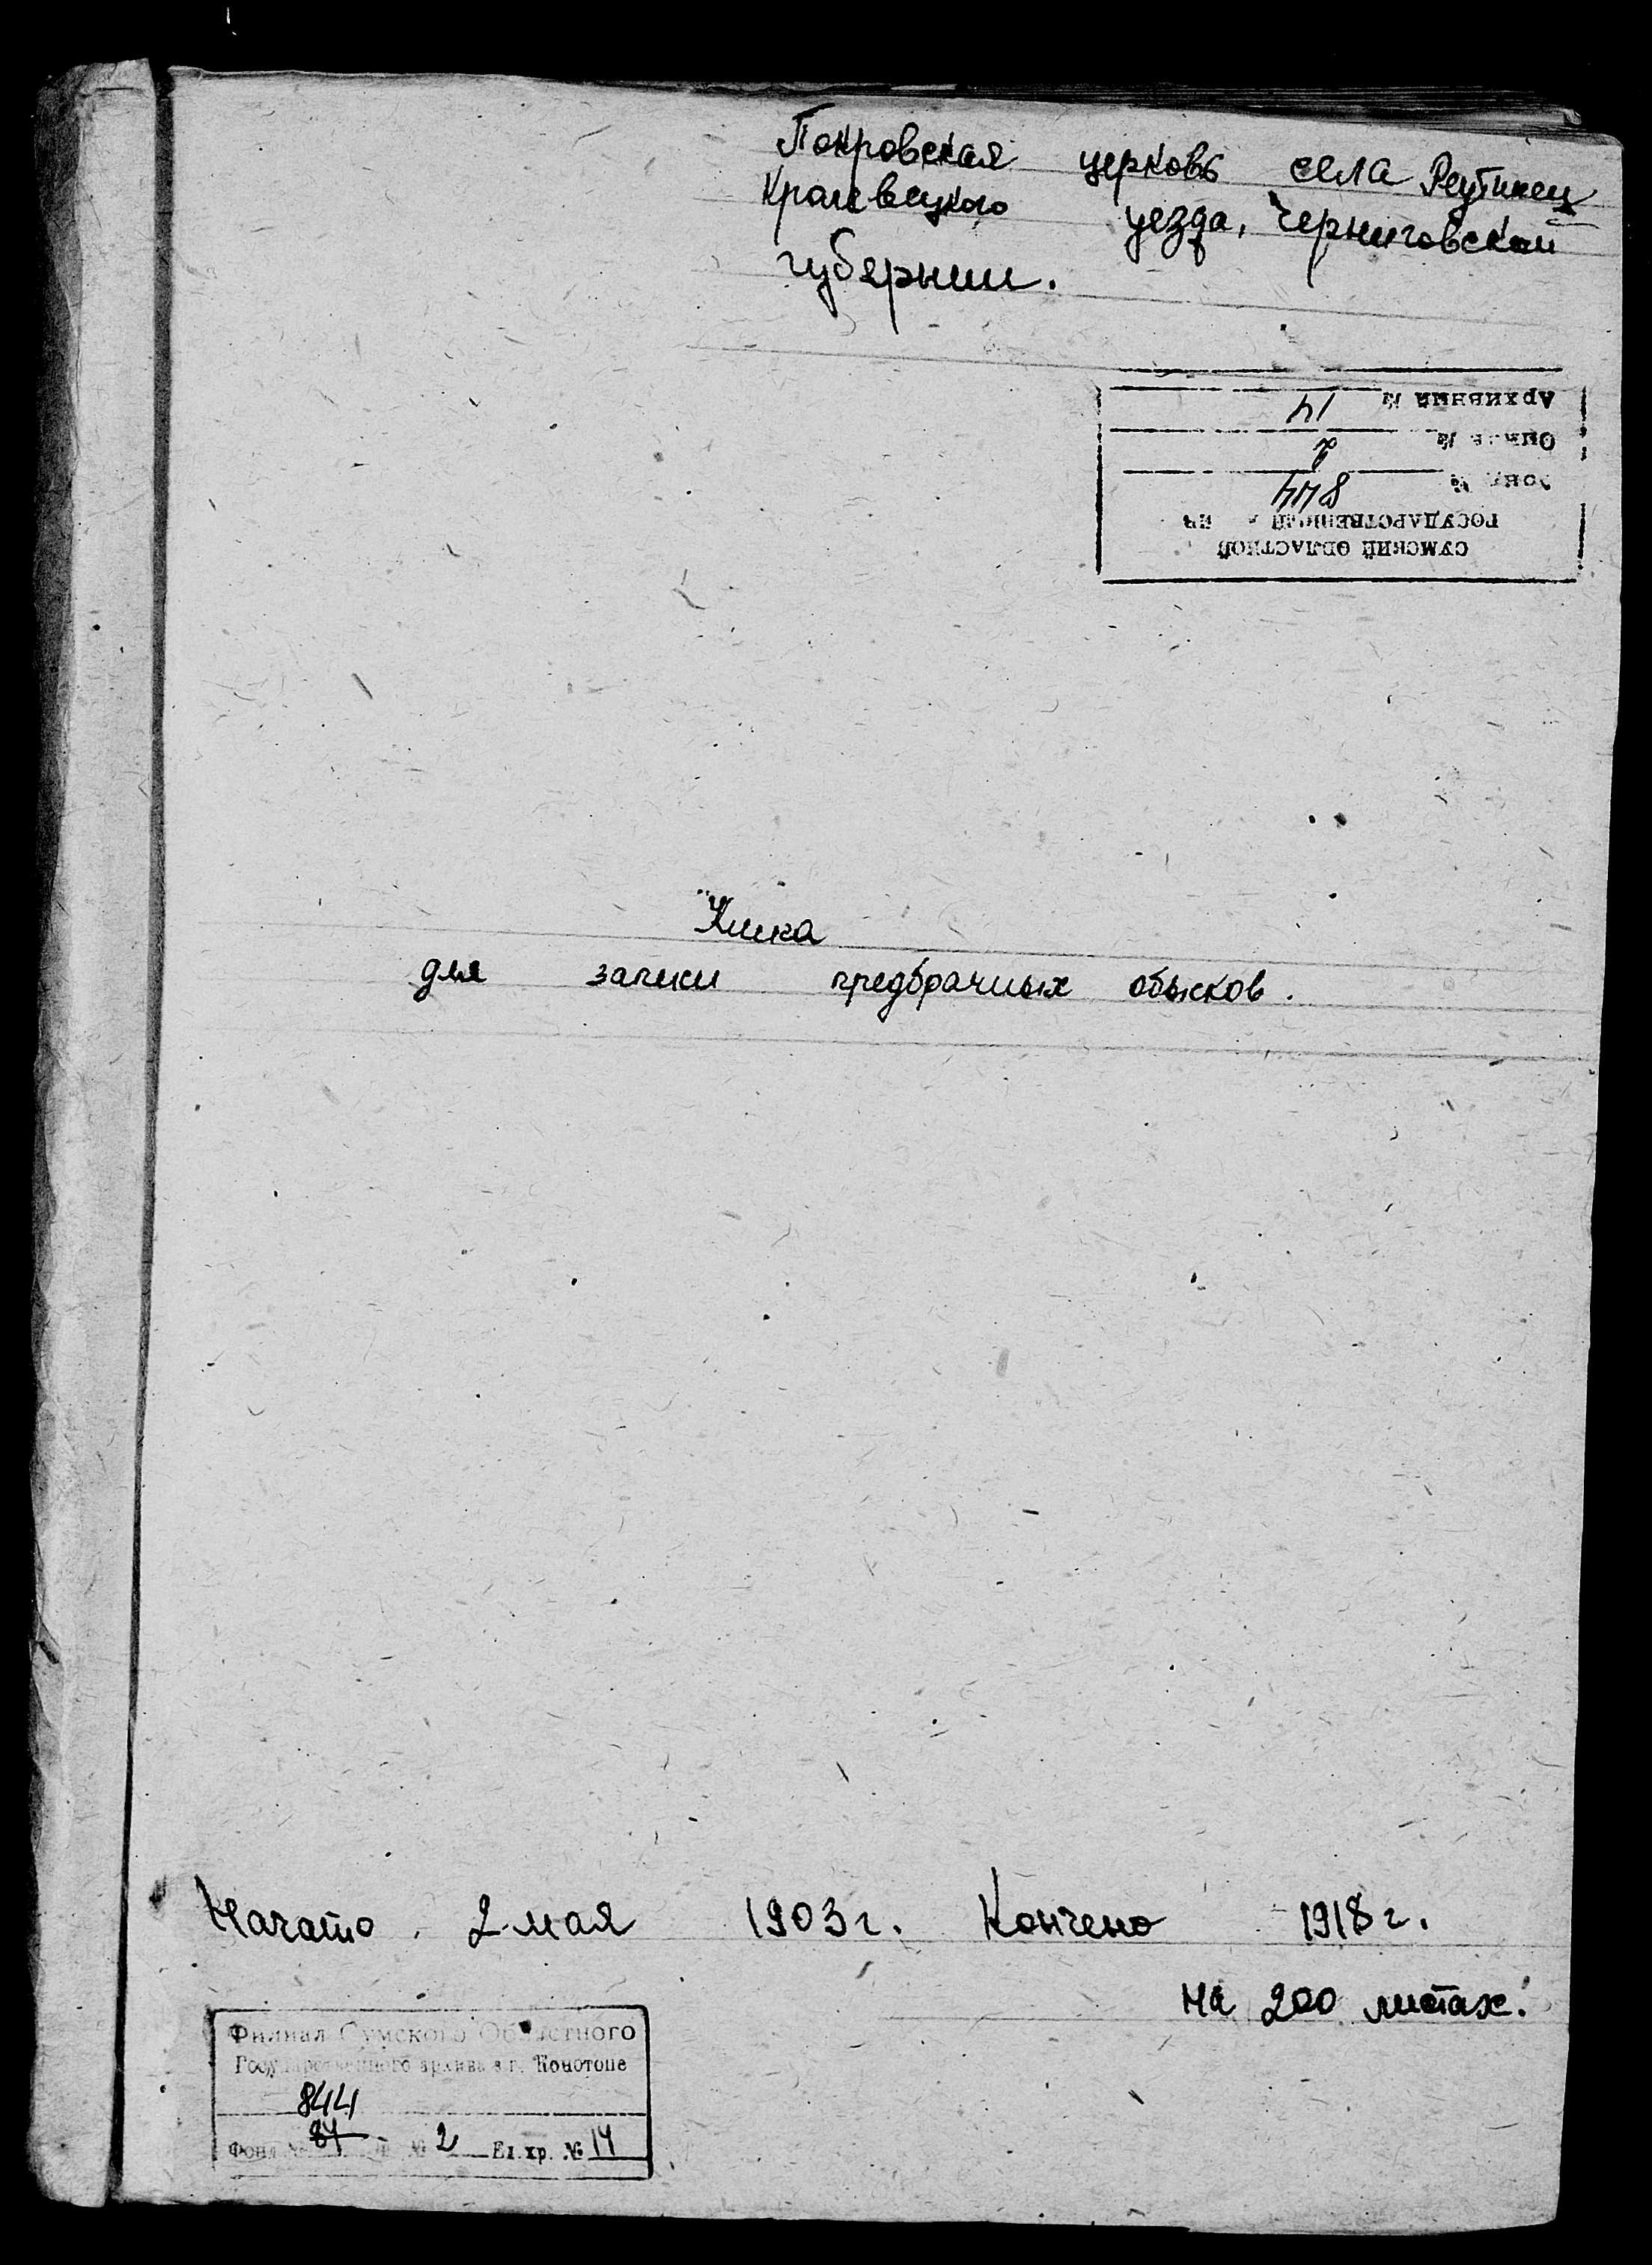 Покровская церковь села Реутинец
Кролевецкого уезда, Черниговской
губернии.
СУМСКИЙ ОБЛАСТНОЙ
ГОСУДАРСТВЕННЫЙ
Фонд № 844
Опись № 2
Архивный № 14
Книга
для записи предбрачных обысков.
Начато 2 мая 1903 г. Кончено 1918 г.
на 200 листах.
Филиал Сумского Областного
Государственного архива в г. Конотопе
844
Фонд № 84 № 2 Ед. хр. № 14